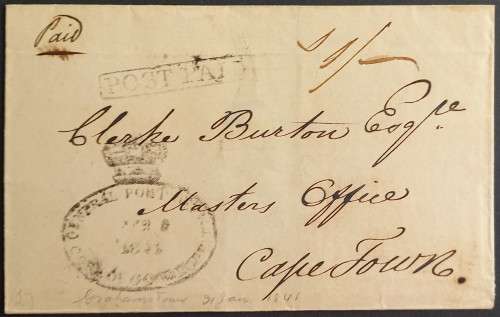 Paid
1/-
POST PAID
Clerke Burton Esqre
Masters Office
Cape Town.
GENERAL POST
Grahamstown 31 Jan 1841